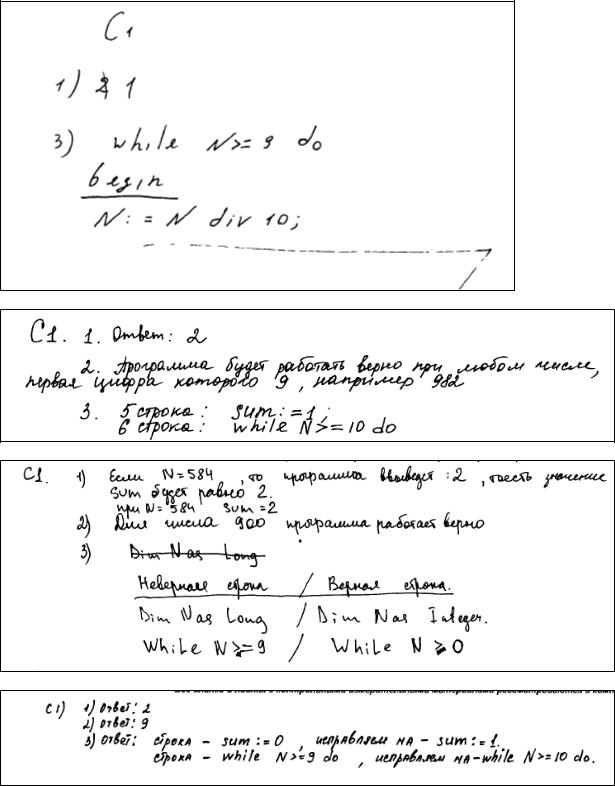 C1
1) 1
3) while N>= 9 do
begin
N:= N div 10;
C1. 1. Ответ: 2
2. Программа будет работать верно при любом числе,
первая цифра которого 9, например 982
3. 5 строка: sum:=1;
6 строка: while N>=10 do
C1. 1) Если N=584, то программа выведет: 2, тоесть значение
sum будет равно 2.
при N=584 sum=2
2) Для числа 900 программа работает верно
3) Dim N as Long
Неверная строка / Верная строка.
Dim N as Long / Dim N as Integer.
While N>=9 / While N>0
C1) 1) Ответ: 2
2) Ответ: 9
3) Ответ: строка - sum:=0, исправляем на - sum:=1.
строка - while N>=9 do, исправляем на - while N>=10 do.